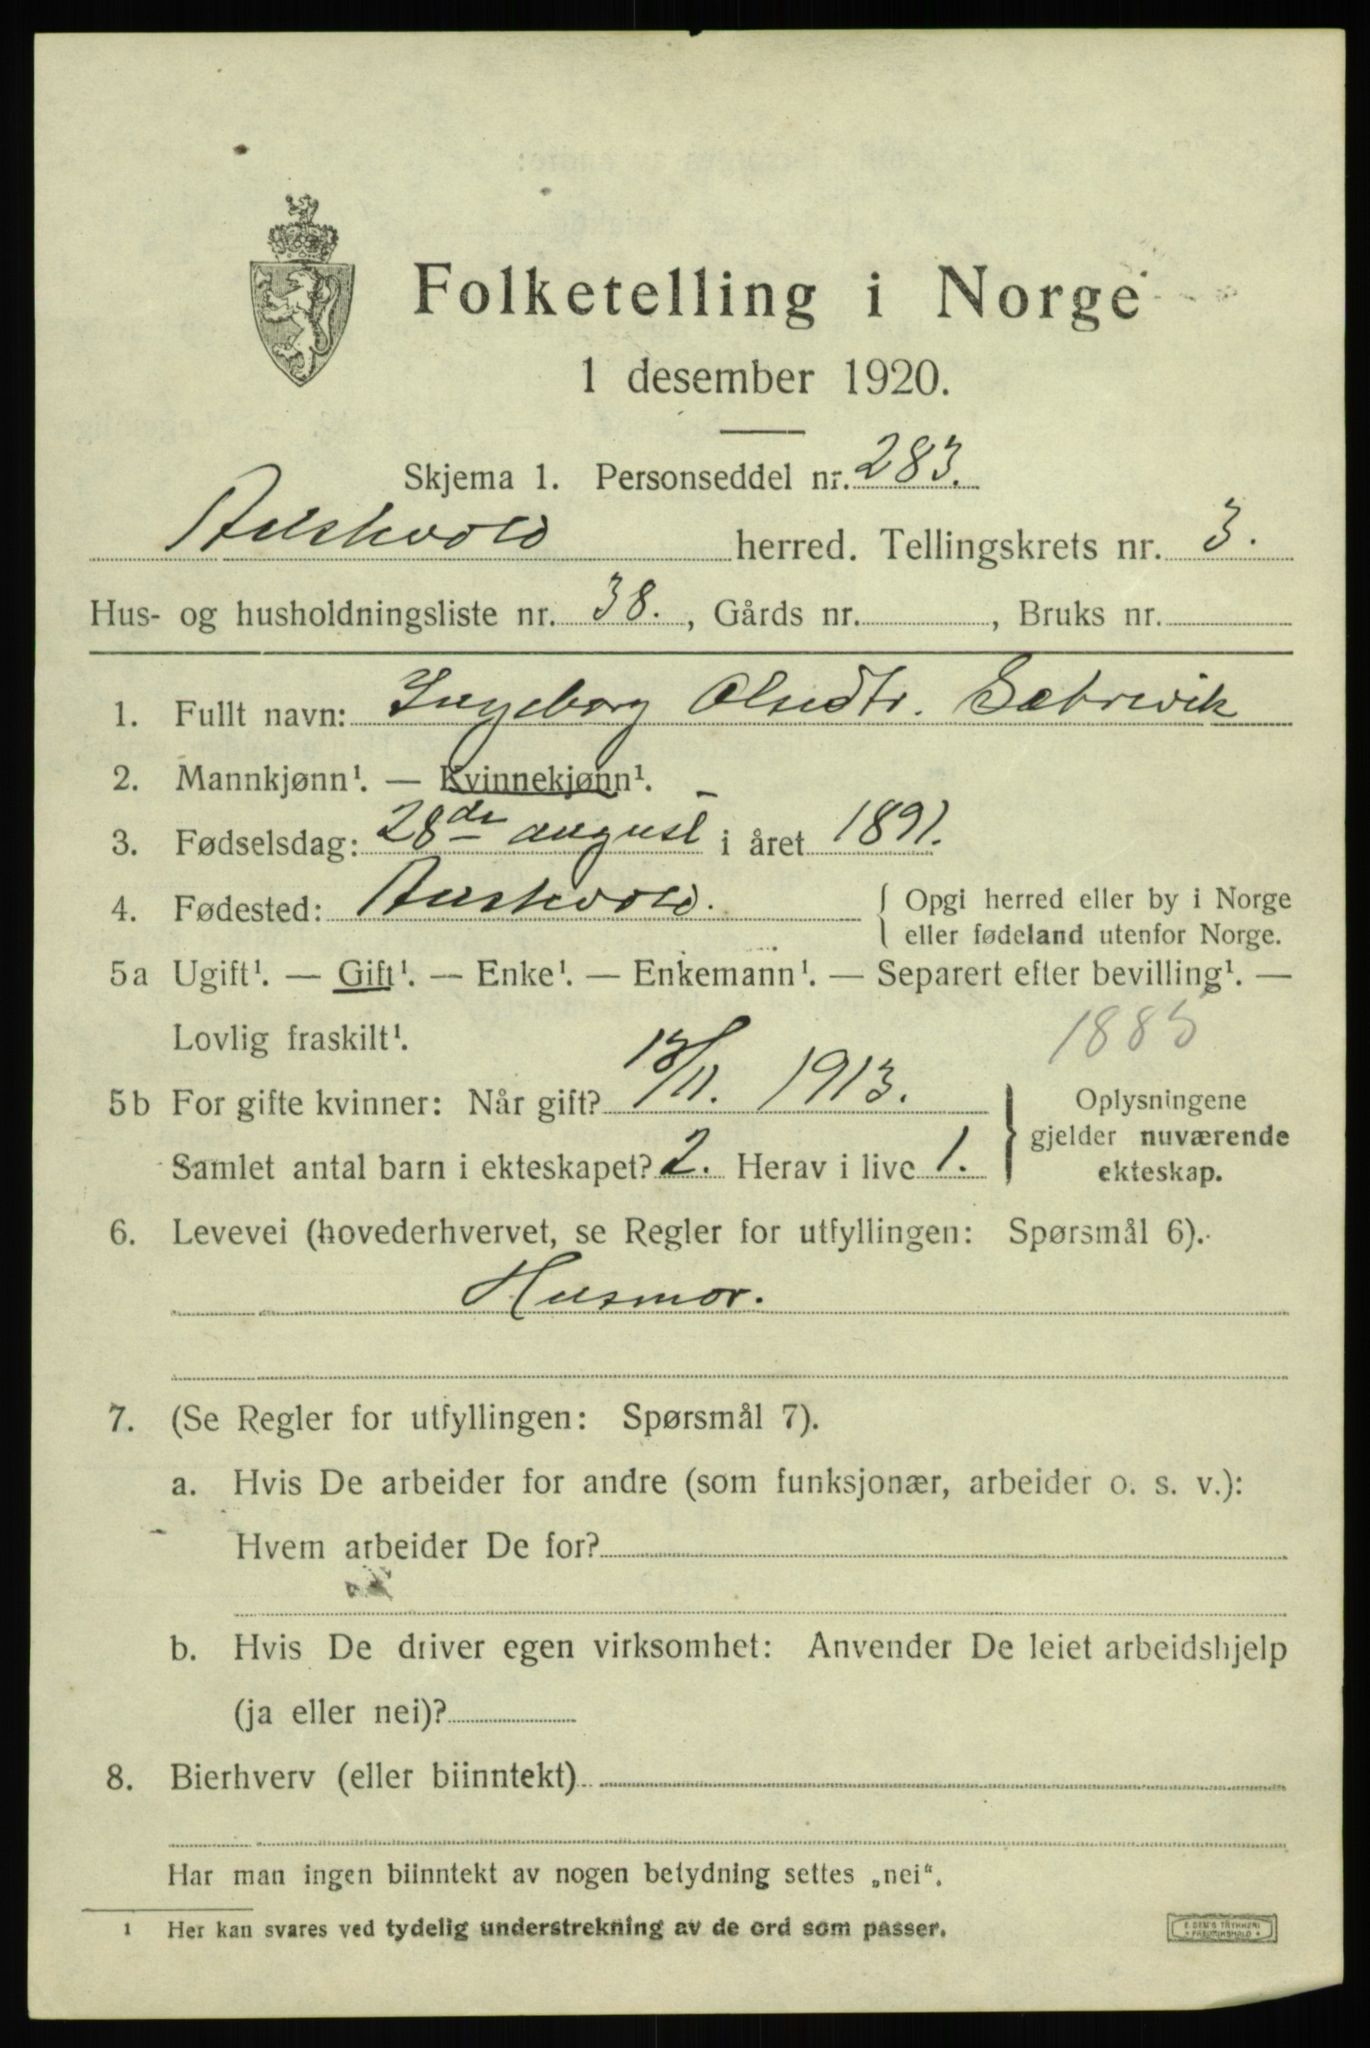 Folketelling i Norge
1 desember 1920.
Skjema 1. Personseddel nr. 283.
Austevold herred. Tellingskrets nr. 3.
Hus- og husholdningsliste nr. 38. , Gårds nr. , Bruks nr.
1. Fullt navn: Ingeborg Olsedtr. Sætrevik
2. Mannkjønn¹. — Kvinnekjønn¹.
3. Fødselsdag: 28de august i året 1891.
4. Fødested: Austevold. { Opgi herred eller by i Norge
eller fødeland utenfor Norge.
5a Ugift¹. — Gift¹. — Enke¹. — Enkemann¹. — Separert efter bevilling¹. —
Lovlig fraskilt¹. 1885
5b For gifte kvinner: Når gift? 13/11. 1913. } Oplysningene
gjelder nuværende
ekteskap.
Samlet antal barn i ekteskapet? 2. Herav i live 1.
6. Levevei (hovederhvervet, se Regler for utfyllingen: Spørsmål 6).
Husmor.
7. (Se Regler for utfyllingen: Spørsmål 7).
a. Hvis De arbeider for andre (som funksjonær, arbeider o. s. v.):
Hvem arbeider De for?
b. Hvis De driver egen virksomhet: Anvender De leiet arbeidshjelp
(ja eller nei)?
8. Bierhverv (eller biinntekt)
Har man ingen biinntekt av nogen betydning settes „nei“.
¹ Her kan svares ved tydelig understrekning av de ord som passer.